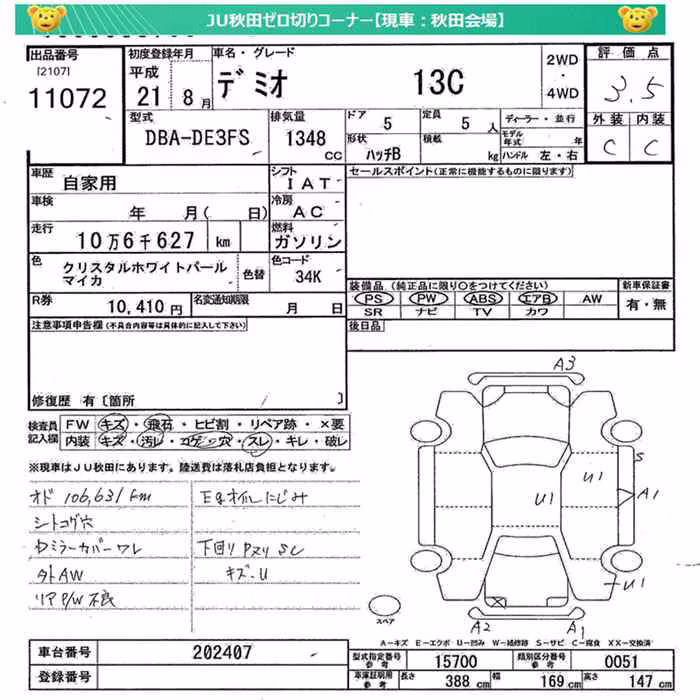 JU秋田ゼロ切りコーナー【現車：秋田会場】
出品番号
[2107]
11072
初度登録年月
平成
21 8月
車名・グレード
デミオ 13C
2WD
・
4WD
評価点
3.5
外装 内装
C C
型式
DBA-DE3FS
排気量
1348
CC
ドア
5
定員
5 人
形状
ハッチB
積載
kg
ディーラー・並行
モデル年式 年
ハンドル 左・右
車歴
自家用
シフト
IAT
車検
年 月( 日)
冷房
AC
走行
10万6千627 km
燃料
ガソリン
色
クリスタルホワイトパール
マイカ
色替
色コード
34K
R券
10,410 円
名変通知期限
月 日
セールスポイント(正常に機能するものに限ります)
装備品 (純正品に限り○をつけてください)
PS PW ABS エアB AW
SR ナビ TV カワ
新車保証書
有・無
後日品
注意事項申告欄(不具合内容等は具体的に記入して下さい)
修復歴 有〔箇所 〕
検査員
記入欄
FW キズ・飛石・ヒビ割・リペア跡・×要
内装 キズ・汚レ・コゲ・穴・スレ・キレ・破レ
※現車はJU秋田にあります。陸送費は落札店負担となります。
オド 106,631 km
シートコゲ穴
ミラーカバーワレ
外AW
リアP/W不良
E.g オイルにじみ
下回り Pスリ SC
キズ・U
A3
U1
U1
S
A1
U1
A2
A1
スペア
A-キズ E-エクボ U-凹み W-補修跡 S-サビ C-腐食 XX-交換済
車台番号
202407
登録番号
型式指定番号
参考
15700
類別区分番号
参考
0051
車庫証明用
参考
長さ 388 cm
幅 169 cm
高さ 147 cm